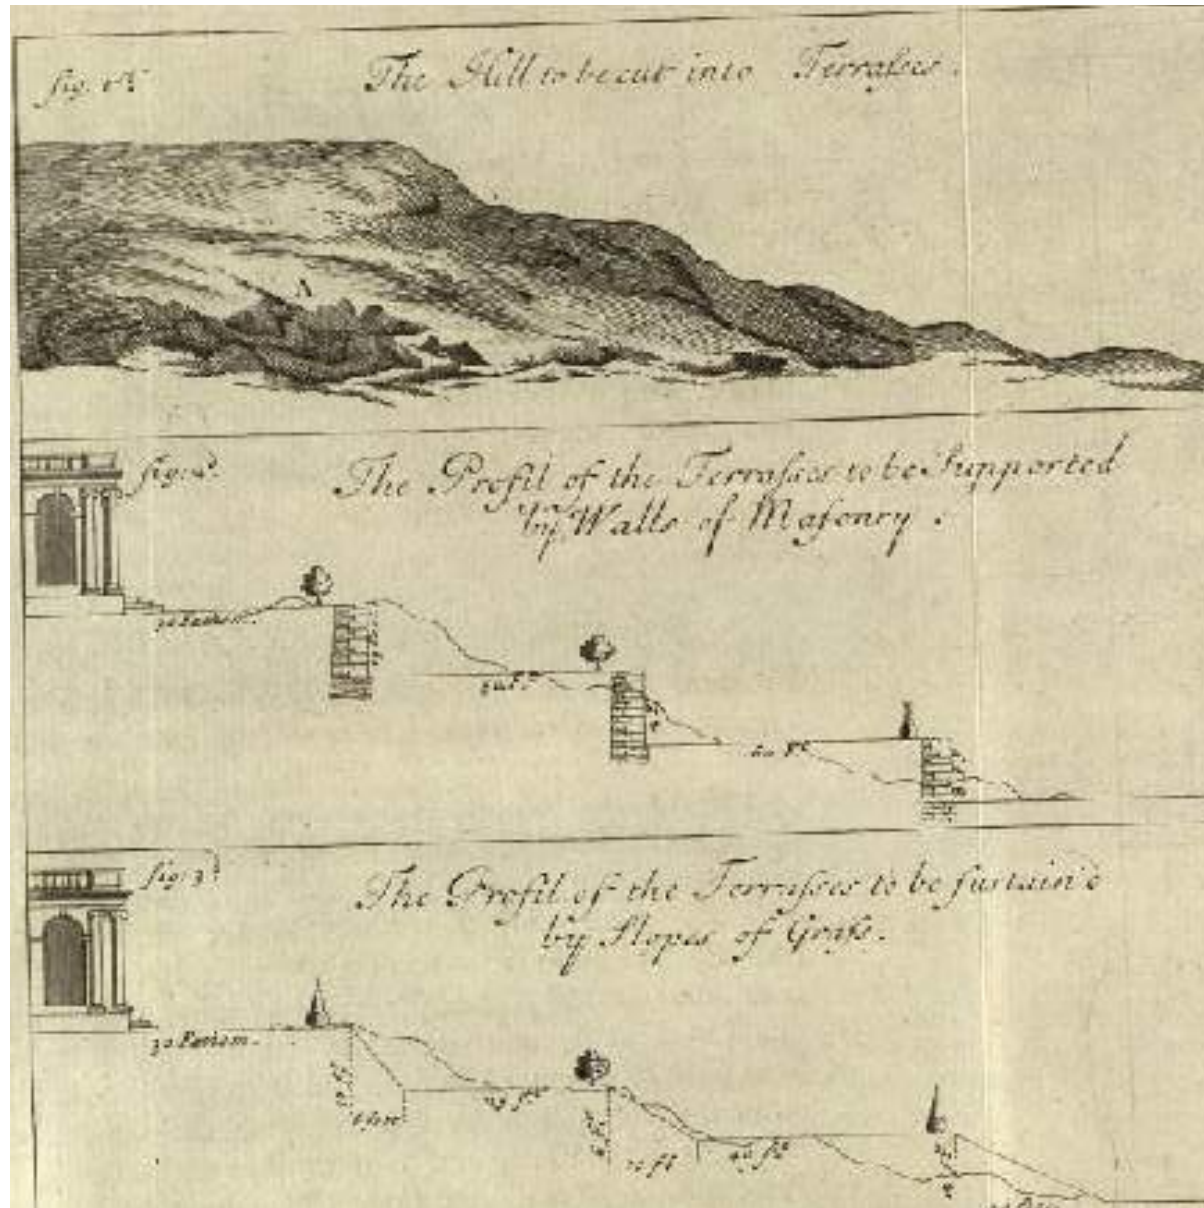 fig. 1st
The Hill to be cut into Terrasses.
A
fig. 2d.
The Profil of the Terrasses to be Supported
by Walls of Masonry.
30 Fathom.
60 Ft
fig. 3d
The Profil of the Terrasses to be sustain'd
by Slopes of Grass.
30 Fathom.
12 ft
40 ft